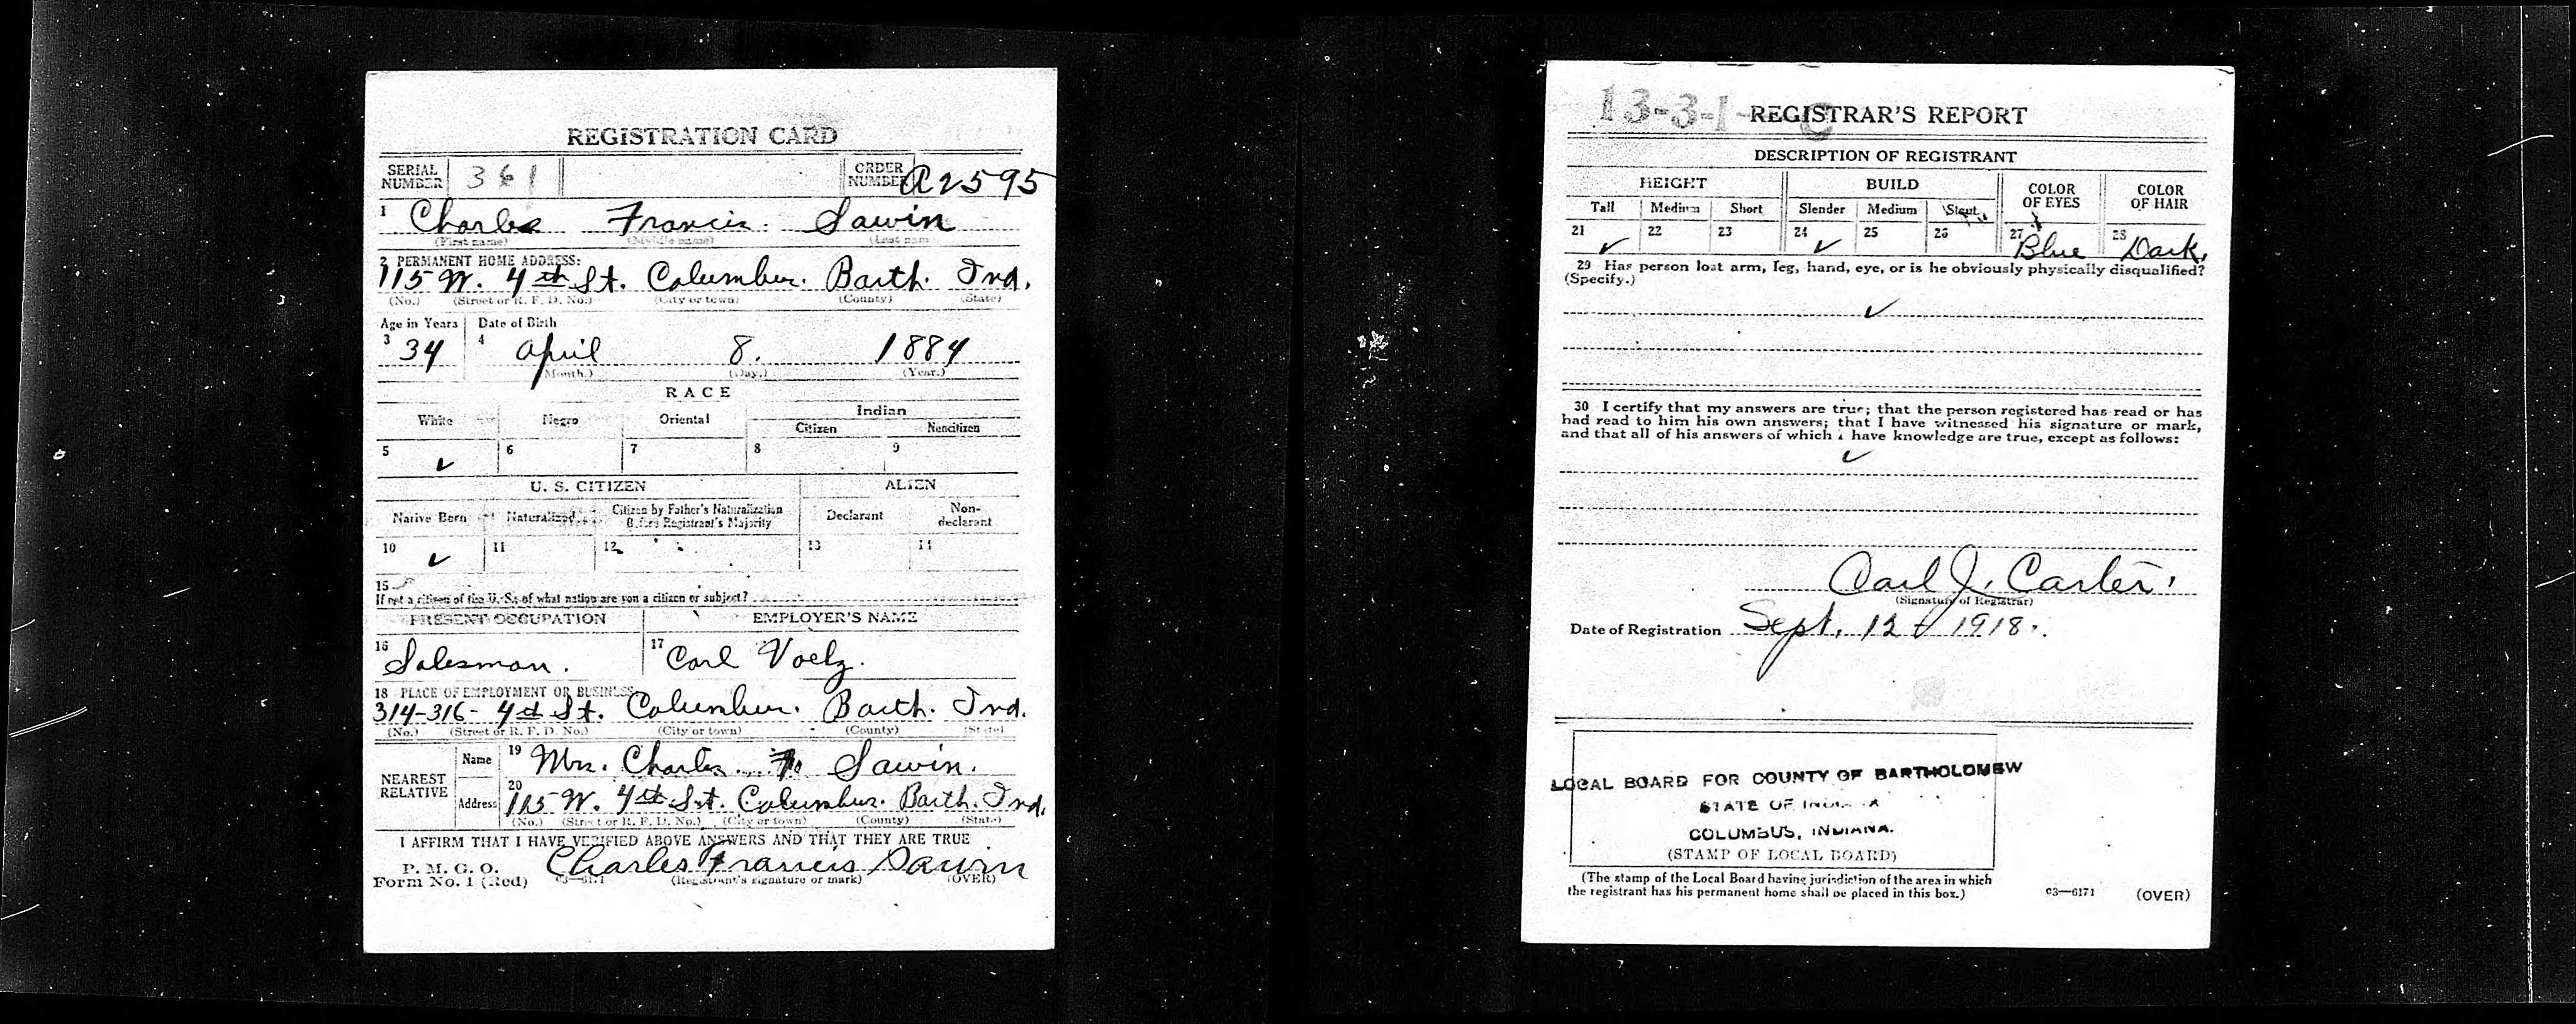 REGISTRATION CARD
SERIAL NUMBER 361 ORDER NUMBER A2595
1 Charles Francis Sawin
(First name) (Middle name) (Last name)
2 PERMANENT HOME ADDRESS:
115 W. 4th St. Columbus. Barth. Ind.
(No.) (Street or R. F. D. No.) (City or town) (County) (State)
Age in Years Date of Birth
3 34 4 April 8. 1884
(Month.) (Day.) (Year.)
RACE
White Negro Oriental Indian
Citizen Noncitizen
5 ✓ 6 7 8 9
U. S. CITIZEN ALIEN
Native Born Naturalized Citizen by Father's Naturalization Before Registrant's Majority Declarant Non-declarant
10 ✓ 11 12 13 14
15
If not a citizen of the U. S., of what nation are you a citizen or subject?
PRESENT OCCUPATION EMPLOYER'S NAME
16 Salesman. 17 Carl Voelz.
18 PLACE OF EMPLOYMENT OR BUSINESS
314-316- 4th St. Columbus. Barth. Ind.
(No.) (Street or R. F. D. No.) (City or town) (County) (State)
NEAREST RELATIVE Name 19 Mrs. Charles F. Sawin.
Address 20 115 W. 4th St. Columbus. Barth. Ind.
(No.) (Street or R. F. D. No.) (City or town) (County) (State)
I AFFIRM THAT I HAVE VERIFIED ABOVE ANSWERS AND THAT THEY ARE TRUE
P. M. G. O.
Form No. 1 (Red) 03—6171 Charles Francis Sawin
(Registrant's signature or mark) (OVER)
13-3-1- C REGISTRAR'S REPORT
DESCRIPTION OF REGISTRANT
HEIGHT BUILD COLOR OF EYES COLOR OF HAIR
Tall Medium Short Slender Medium Stout
21 ✓ 22 23 24 ✓ 25 26 27 Blue 28 Dark.
29 Has person lost arm, leg, hand, eye, or is he obviously physically disqualified?
(Specify.)
✓
30 I certify that my answers are true; that the person registered has read or has
had read to him his own answers; that I have witnessed his signature or mark,
and that all of his answers of which I have knowledge are true, except as follows:
✓
Carl J. Carter.
(Signature of Registrar)
Date of Registration Sept. 12 1918.
LOCAL BOARD FOR COUNTY OF BARTHOLOMEW
STATE OF INDIANA
COLUMBUS, INDIANA.
(STAMP OF LOCAL BOARD)
(The stamp of the Local Board having jurisdiction of the area in which
the registrant has his permanent home shall be placed in this box.)
03—6171 (OVER)